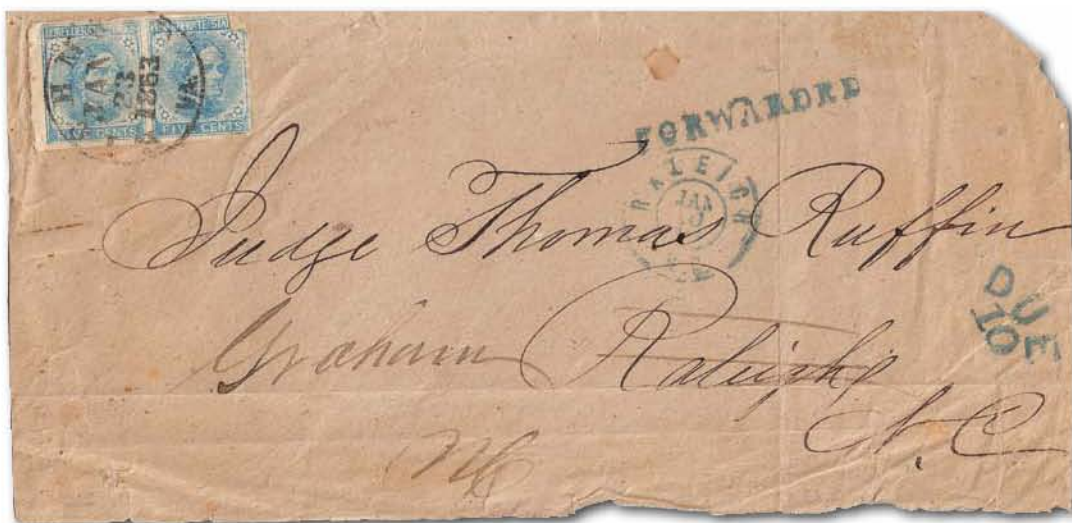 FIVE CENTS FIVE CENTS
JAN
23
1863
VA
FORWARDED
RALEIGH
JAN
Judge Thomas Ruffin
DUE
10
Graham Raleigh
N.C
NC